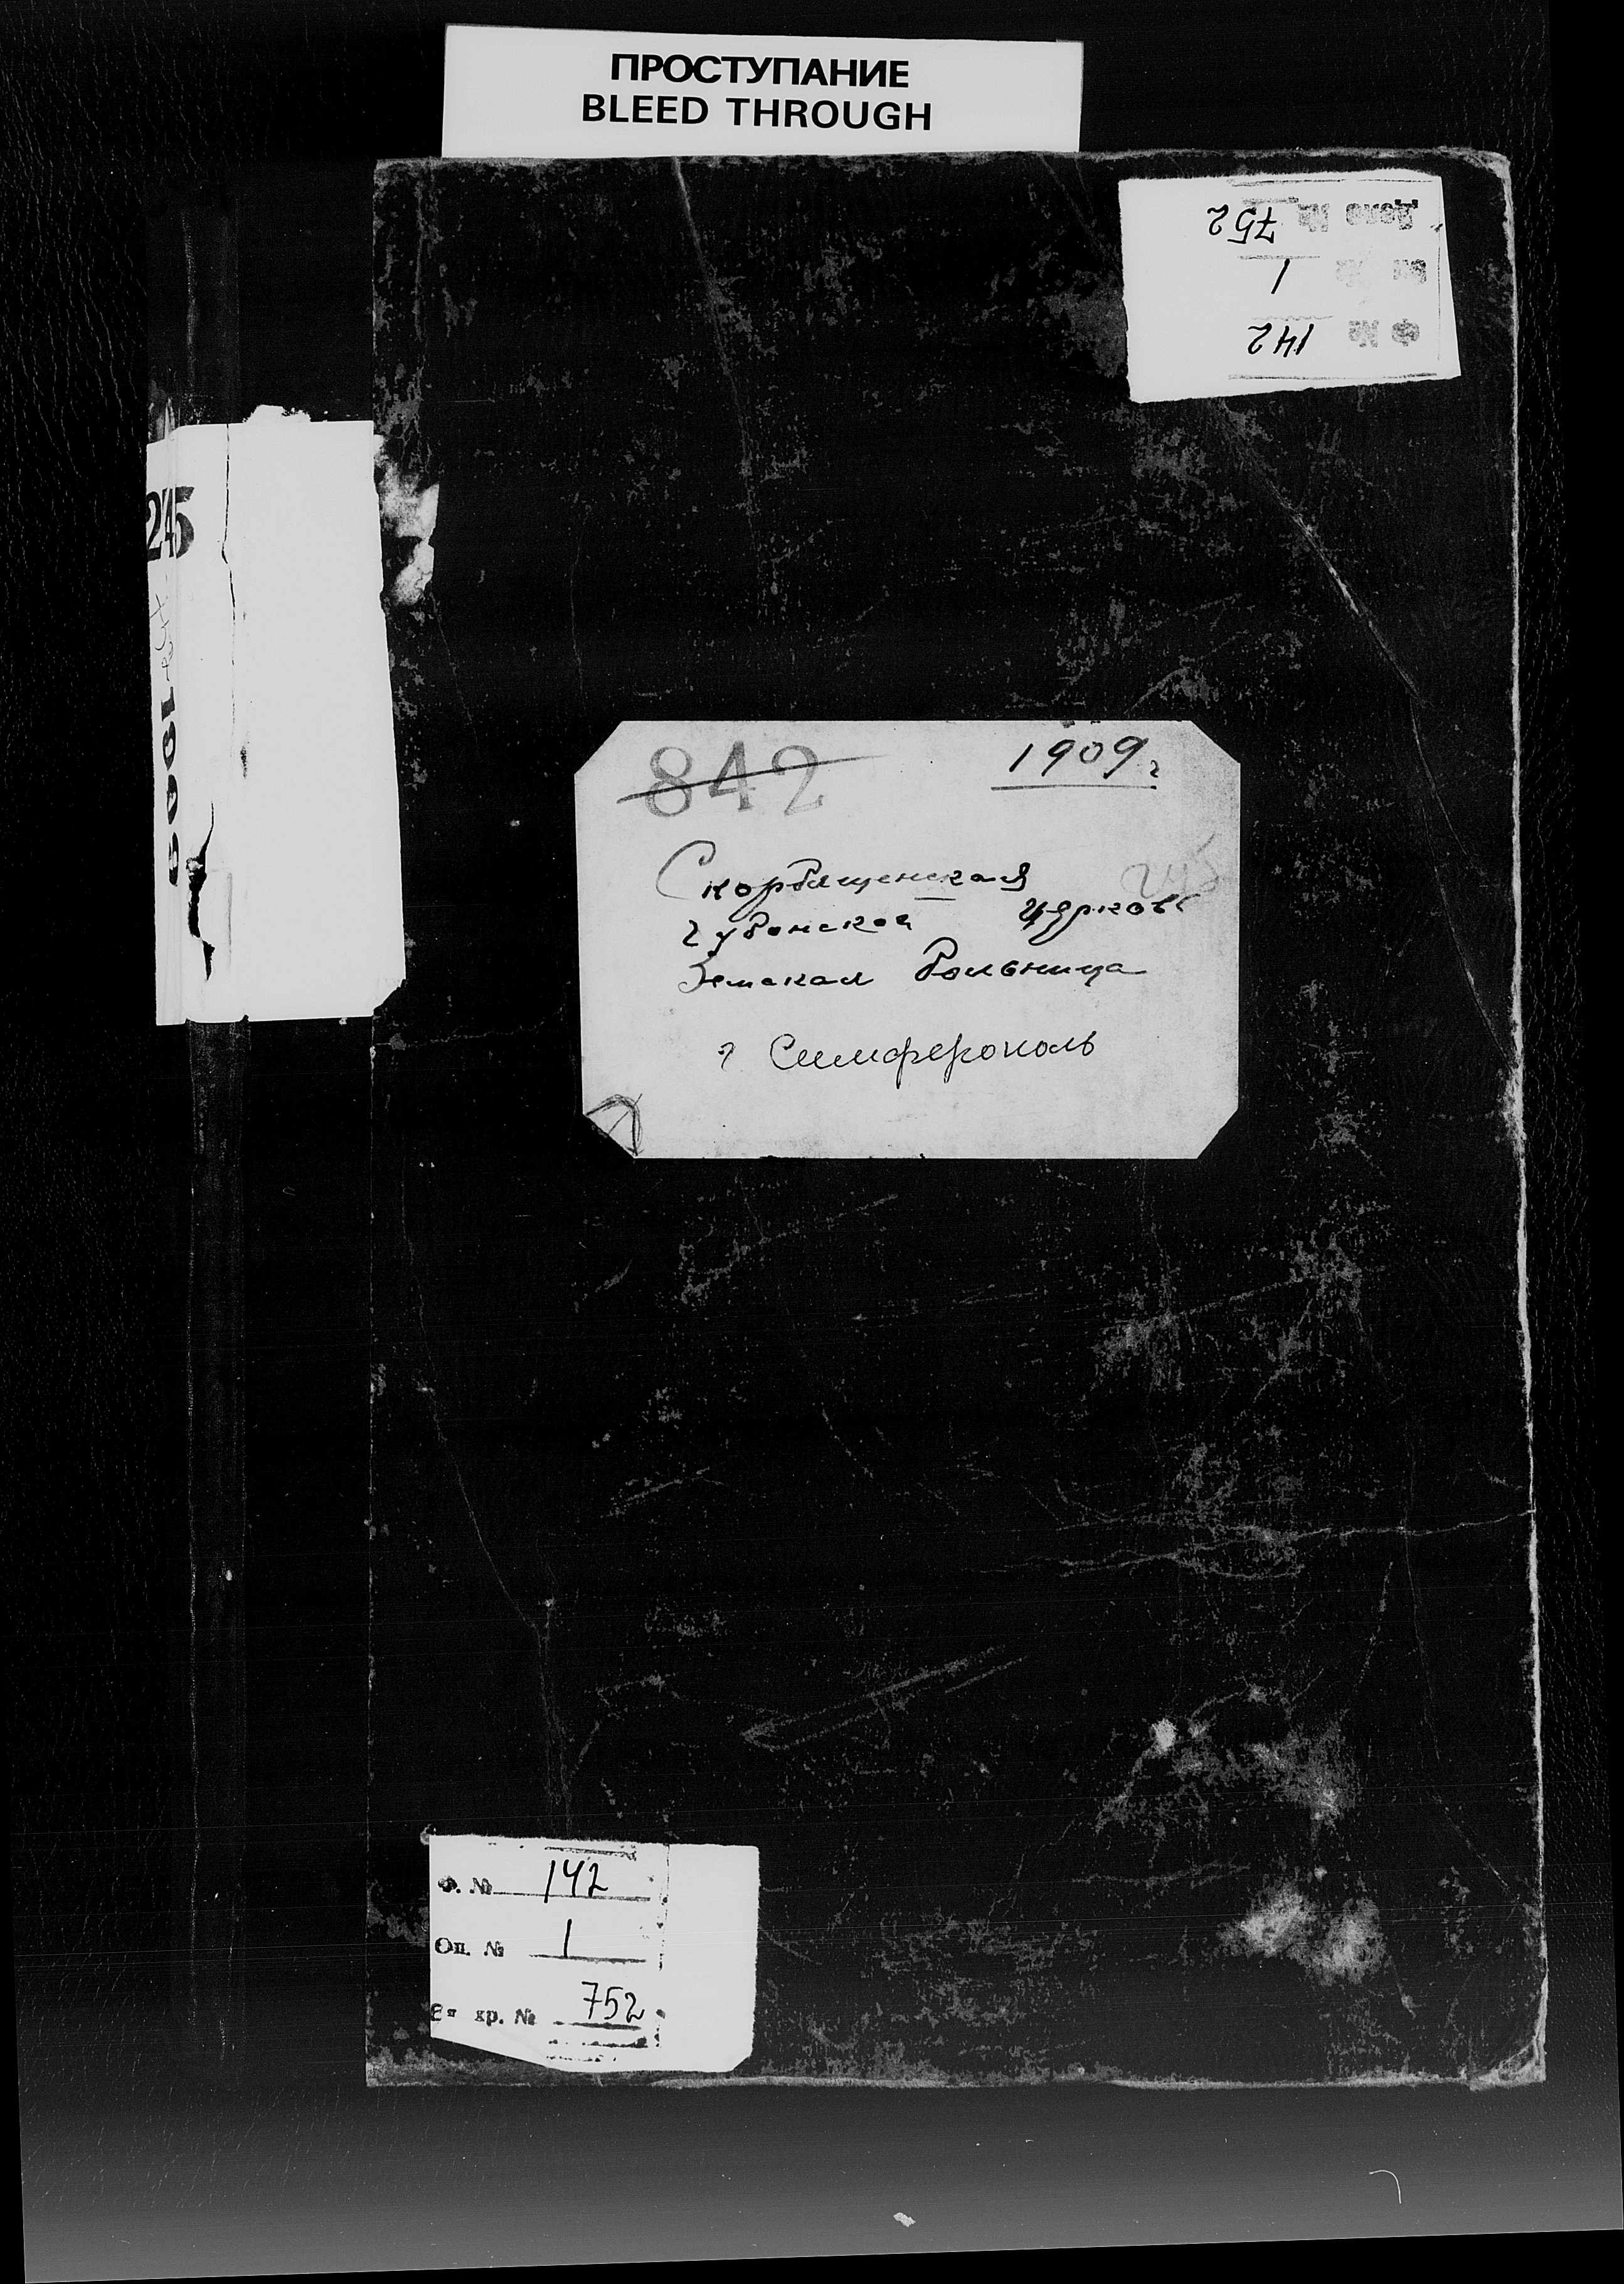 ПРОСТУПАНИЕ
BLEED THROUGH
Дело № 752
1
Ф № 142
245
1909
842
1909 г
Скорбященская
245
губернской церковь
Земская больница
г Симферополь
Ф. № 142
Оп. № 1
хр. № 752